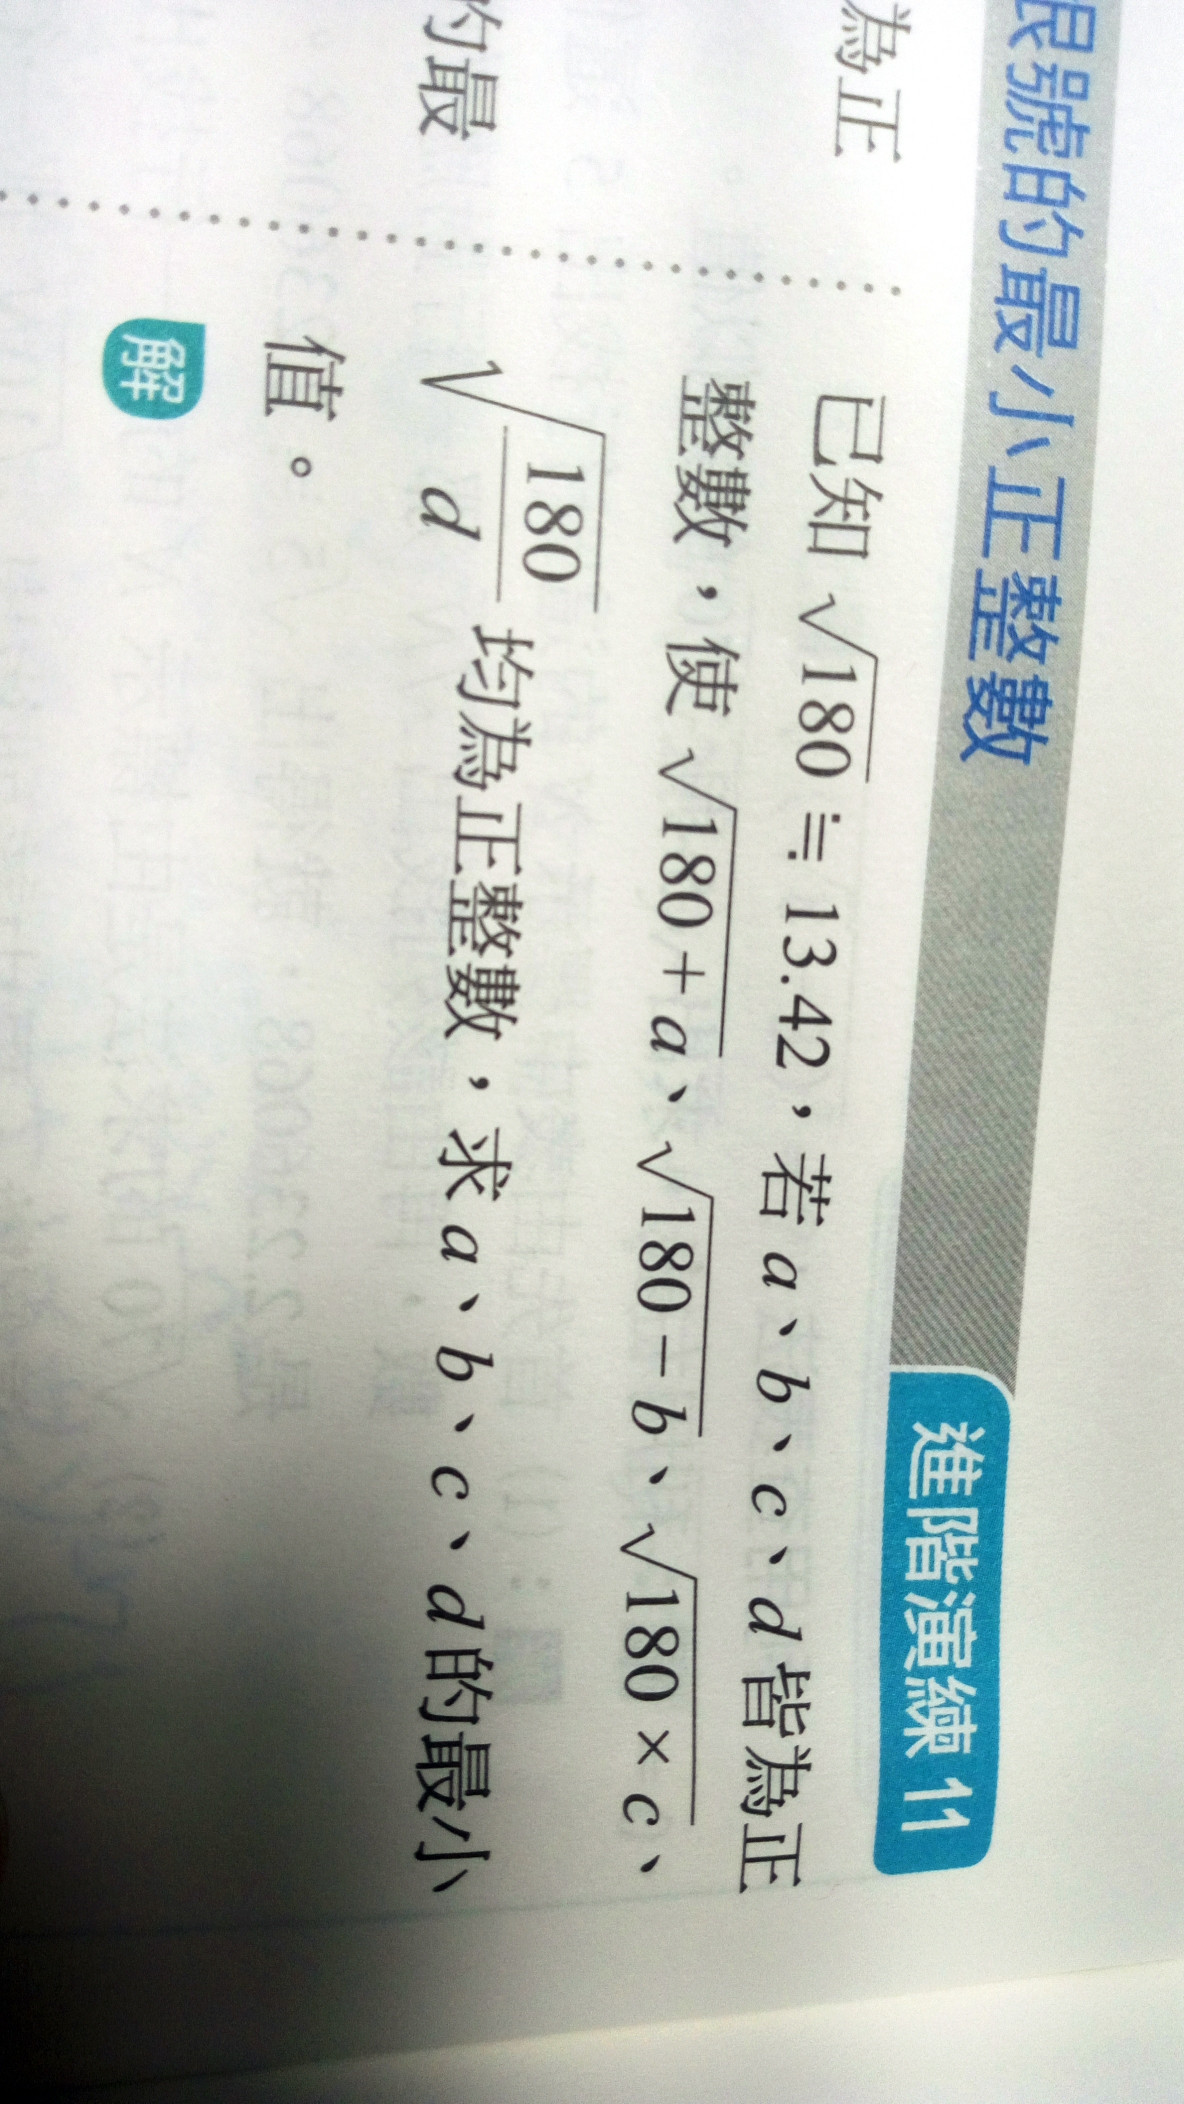 根號的最小正整數
進階演練 11
為正
的最
已知 √180 ≒ 13.42，若 a、b、c、d 皆為正
整數，使 √(180 + a)、√(180 − b)、√(180 × c)、
√(180/d) 均為正整數，求 a、b、c、d 的最小
值。
解